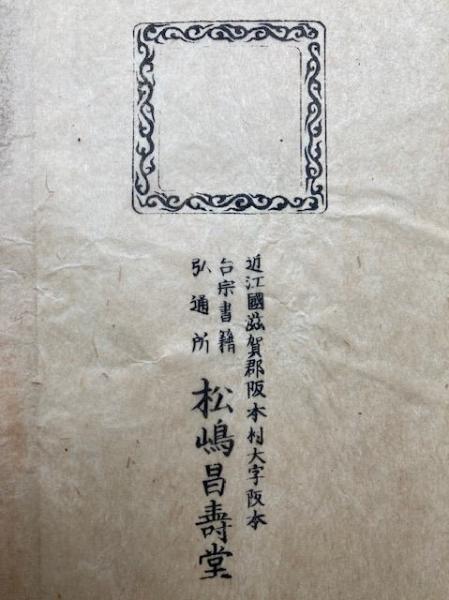 近江國滋賀郡阪本村大字阪本
台宗書籍
弘通所
松嶋昌壽堂